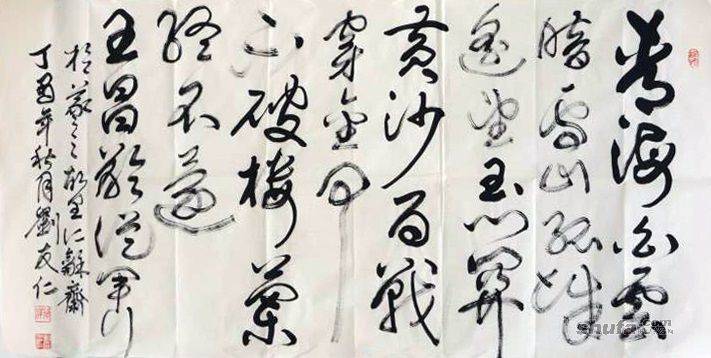 青海長雲
暗雪山孤城
遙望玉門關
黃沙百戰
穿金甲
不破樓蘭
終不還
王昌齡從軍行
於羲之故里仁龢齋
丁酉年秋月劉友仁